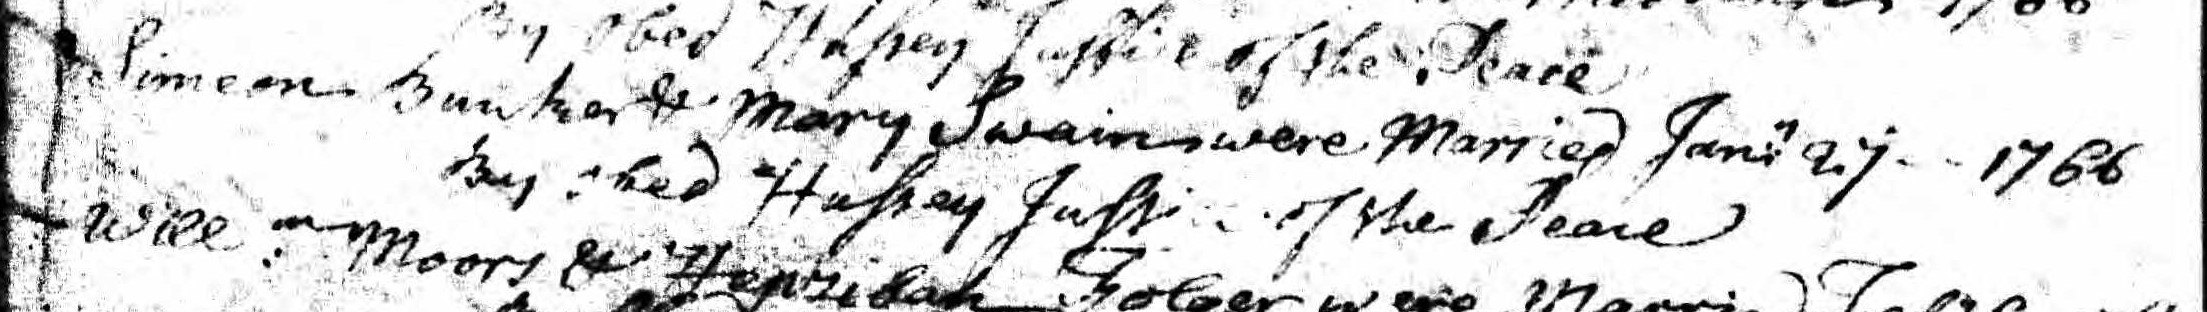 By Obed Hussey Justice of the Peace
Simeon Bunker & Mary Swain were Married Janʸ 27 1766
By Obed Hussey Justice of the Peace
Willᵐ Moors & Hepzibah Folger were Married